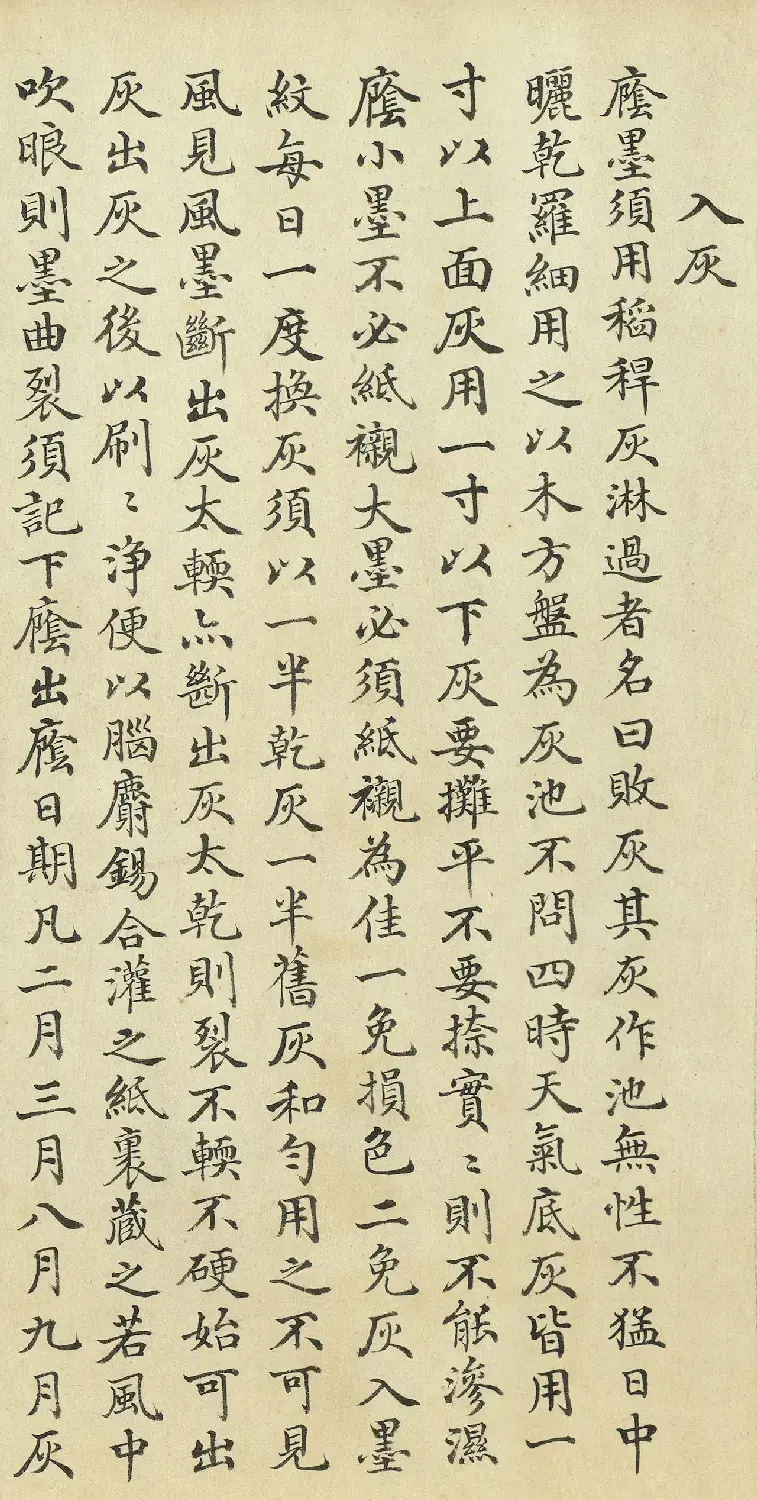 入灰
廕墨須用稻稈灰淋過者名曰敗灰其灰作池無性不猛日中
曬乾羅細用之以木方盤為灰池不問四時天氣底灰皆用一
寸以上面灰用一寸以下灰要攤平不要捺實〻則不能滲濕
廕小墨不必紙襯大墨必須紙襯為佳一免損色二免灰入墨
紋每日一度換灰須以一半乾灰一半舊灰和勻用之不可見
風見風墨斷出灰太輭亦斷出灰太乾則裂不輭不硬始可出
灰出灰之後以刷〻淨便以腦麝錫合灌之紙裏藏之若風中
吹眼則墨曲裂須記下廕出廕日期凡二月三月八月九月灰